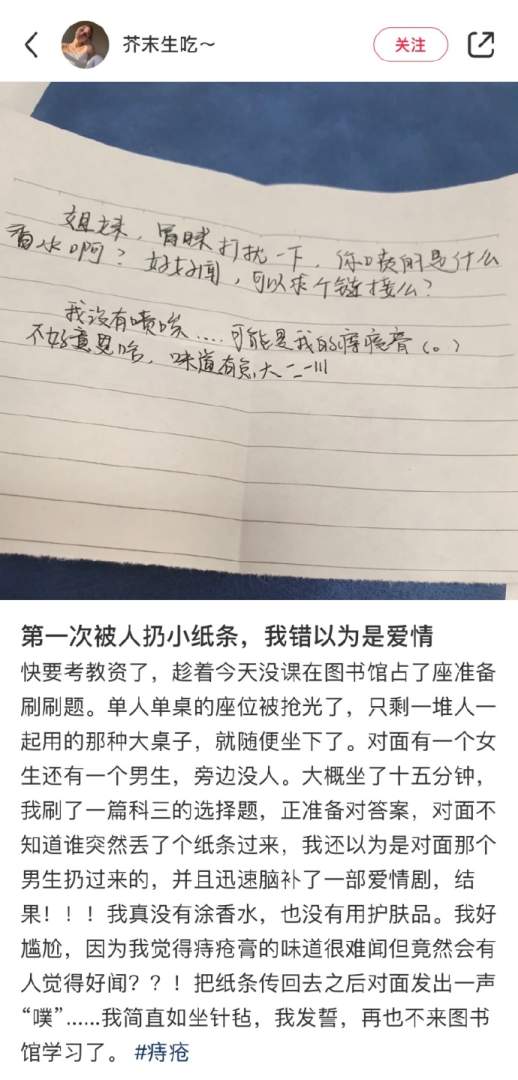 芥末生吃～
关注
姐妹，冒昧打扰一下，你喷的是什么
香水啊？好好闻，可以求个链接么？
我没有喷唉....可能是我的痔疮膏（。）
不好意思哈，味道有点大二二川
第一次被人扔小纸条，我错以为是爱情
快要考教资了，趁着今天没课在图书馆占了座准备
刷刷题。单人单桌的座位被抢光了，只剩一堆人一
起用的那种大桌子，就随便坐下了。对面有一个女
生还有一个男生，旁边没人。大概坐了十五分钟，
我刷了一篇科三的选择题，正准备对答案，对面不
知道谁突然丢了个纸条过来，我还以为是对面那个
男生扔过来的，并且迅速脑补了一部爱情剧，结
果！！！我真没有涂香水，也没有用护肤品。我好
尴尬，因为我觉得痔疮膏的味道很难闻但竟然会有
人觉得好闻？？！把纸条传回去之后对面发出一声
“噗”......我简直如坐针毡，我发誓，再也不来图书
馆学习了。 #痔疮